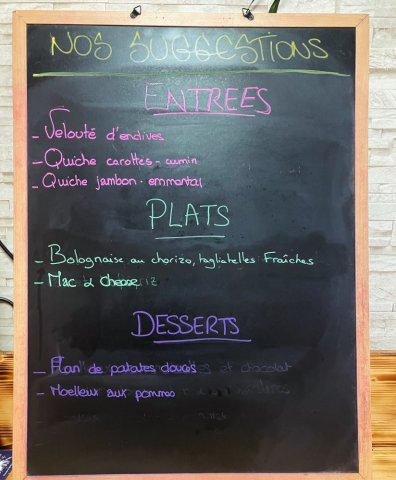 NOS SUGGESTIONS
ENTREES
- Velouté d'endives
- Quiche carottes - cumin
- Quiche jambon - emmental
PLATS
- Bolognaise au chorizo, tagliatelles Fraîches
- Mac & cheese
DESSERTS
- Flan de patates douces et chocolat
- Moelleux aux pommes